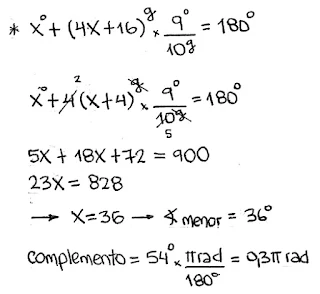 * x° + (4x+16)^g × 9°/10^g = 180°
x° + 4 2 (x+4)^g × 9°/10^g 5 = 180°
5x + 18x + 72 = 900
23x = 828
→ x = 36 → ∢ menor = 36°
complemento = 54° × πrad/180° = 0,3π rad